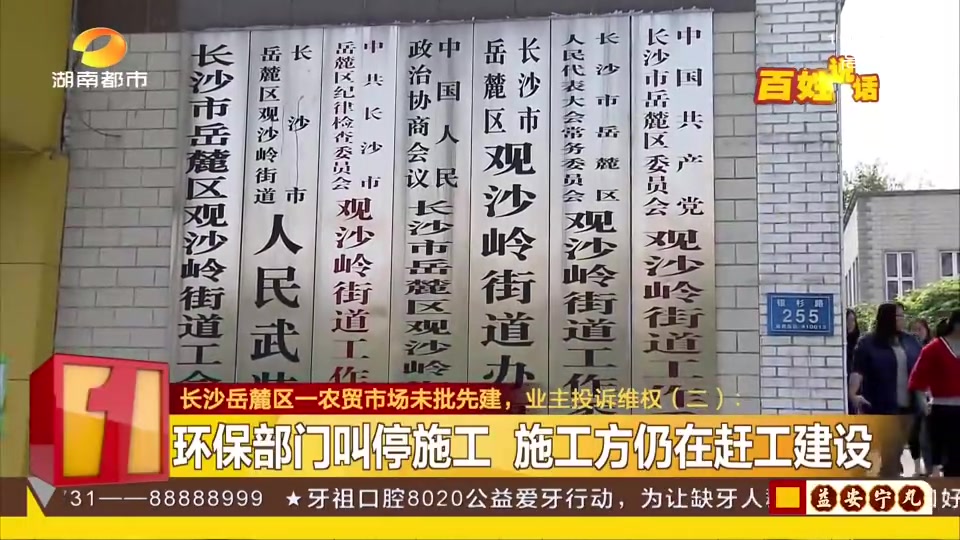 湖南都市
百姓说话
长沙市岳麓区观沙岭街道工会
长沙市
岳麓区观沙岭街道
人民武装
中共长沙市
岳麓区纪律检查委员会
观沙岭街道工作
中国人民
政治协商会议
长沙市岳麓区观沙岭街
长沙市
岳麓区
观沙岭街道办
长沙市岳麓区
人民代表大会常务委员会
观沙岭街道工作
中国共产党
长沙市岳麓区委员会
观沙岭街道工作
银杉路
255
410013
1
长沙岳麓区一农贸市场未批先建，业主投诉维权（二）：
环保部门叫停施工 施工方仍在赶工建设
731——88888999 ★牙祖口腔8020公益爱牙行动，为让缺牙人
益安宁丸
好